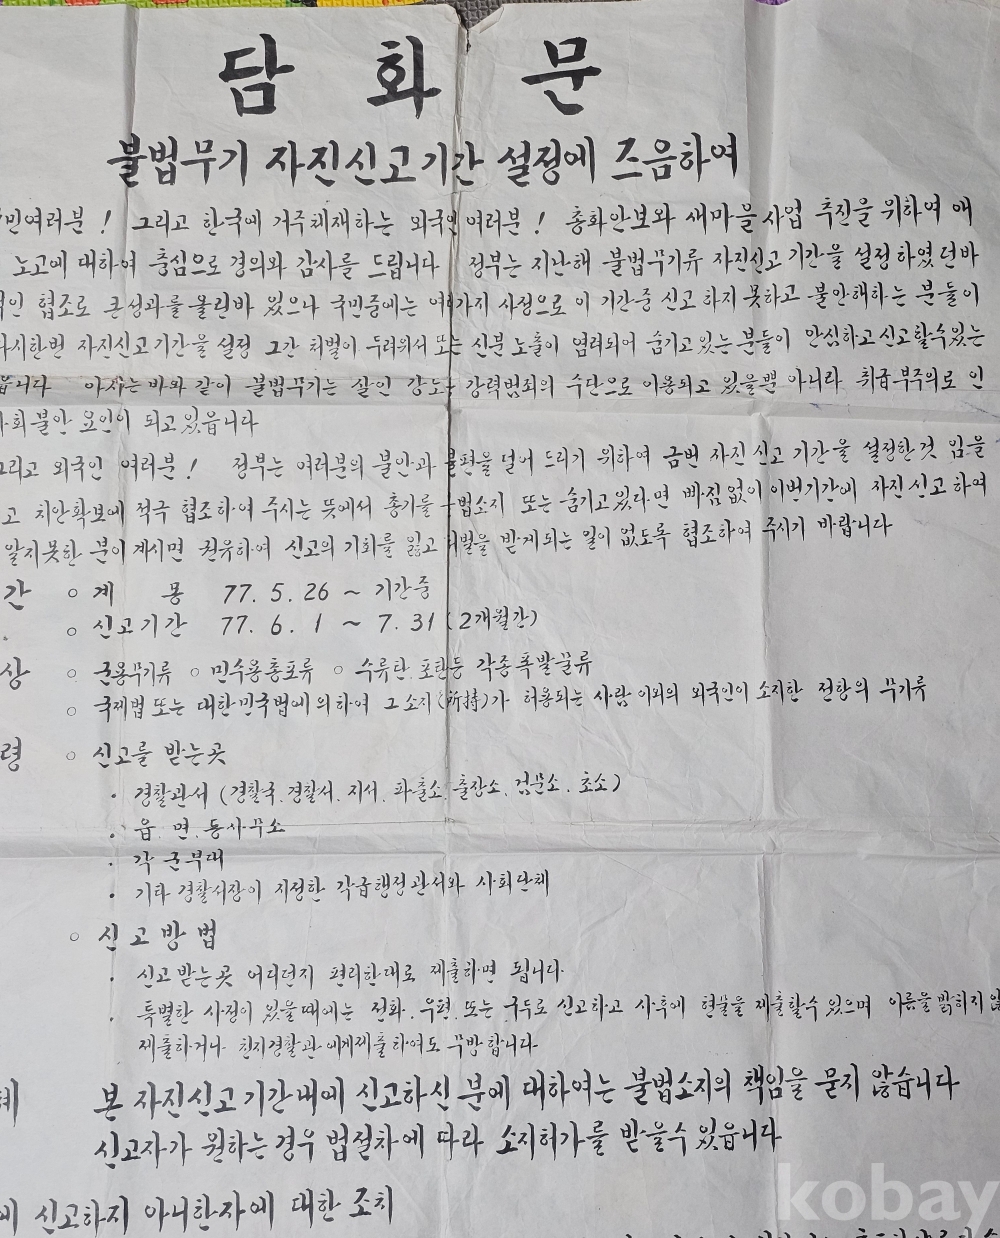 담 화 문
불법무기 자진신고기간 설정에 즈음하여
민여러분! 그리고 한국에 거주체재하는 외국인 여러분! 총화안보와 새마을사업 추진을 위하여 애
노고에 대하여 충심으로 경의와 감사를 드립니다 정부는 지난해 불법무기류 자진신고기간을 설정하였던바
적인 협조로 큰성과를 올린바 있으나 국민중에는 여러가지 사정으로 이 기간중 신고하지못하고 불안해하는 분들이
다시한번 자진신고기간을 설정 그간 처벌이 두려워서 또는 신분노출이 염려되어 숨기고있는 분들이 안심하고신고할수있는
읍니다 아시는바와 같이 불법무기는 살인 강도등 강력범죄의 수단으로 이용되고 있을뿐 아니라 취급부주의로 인
사회불안 요인이 되고있읍니다
그리고 외국인 여러분! 정부는 여러분의 불안과 불편을 덜어 드리기 위하여 금번 자진신고 기간을 설정한것 임을
고 치안확보에 적극 협조하여 주시는 뜻에서 총기를 불법소지 또는 숨기고있다면 빠짐없이 이번기간에 자진신고하여
알지못한 분이계시면 권유하여 신고의 기회를 잃고 처벌을 받게되는 일이 없도록 협조하여 주시기 바랍니다
간 ○ 계 몽 77. 5. 26 ~ 기간중
○ 신고기간 77. 6. 1 ~ 7. 31 (2개월간)
상 ○ 군용무기류 ○ 민수용총포류 ○ 수류탄 포탄등 각종폭발물류
○ 국제법또는 대한민국법에의하여 그소지(所持)가 허용되는 사람 이외의 외국인이 소지한 전항의 무기류
령 ○ 신고를 받는곳
· 경찰관서 (경찰국. 경찰서. 지서. 파출소. 출장소. 검문소. 초소)
· 읍. 면. 동사무소
· 각 군부대
· 기타 경찰서장이 지정한 각급행정관서와 사회단체
○ 신고방법
· 신고받는곳 어디던지 편리한대로 제출하면 됩니다.
· 특별한 사정이 있을때에는 전화. 우편. 또는 구두로 신고하고 사후에 현물을 제출할수있으며 이름을 밝히지 않
제출하거나 친지경찰관에게제출하여도 무방합니다
혜 본 자진신고기간내에 신고하신 분에 대하여는 불법소지의 책임을 묻지 않습니다
신고자가 원하는경우 법절차에 따라 소지허가를 받을수 있읍니다
에 신고하지 아니한자에 대한 조치
kobay